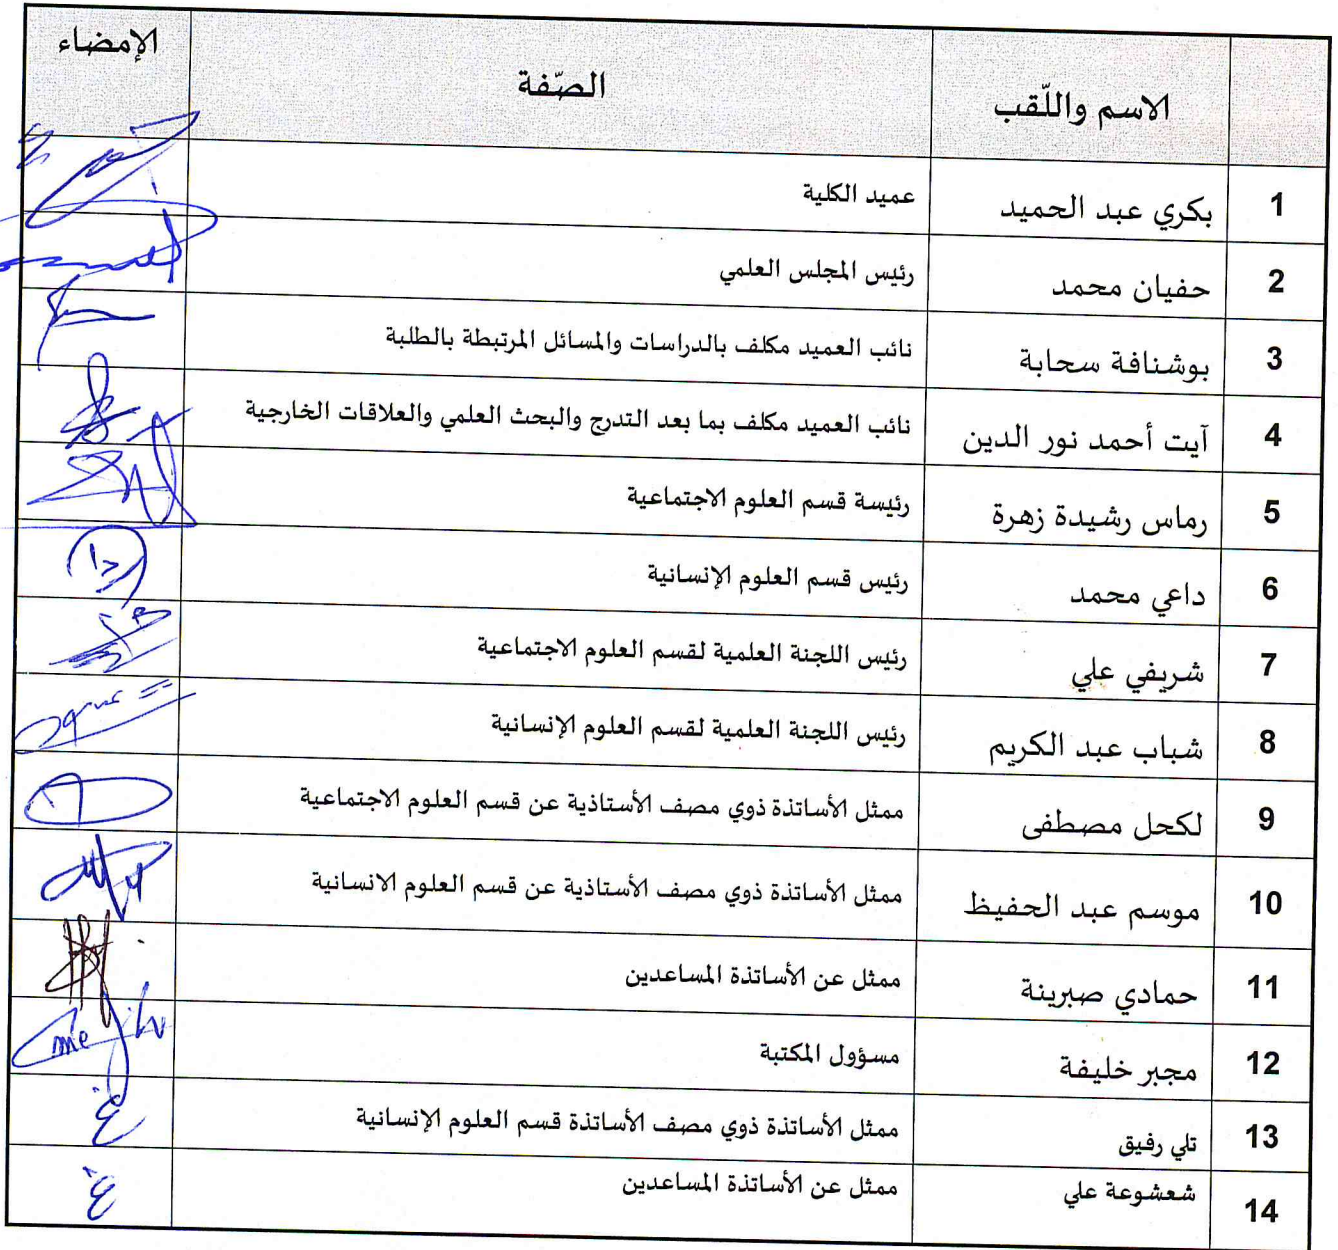 الاسم واللّقب الصّفة الإمضاء
1 بكري عبد الحميد عميد الكلية
2 حفيان محمد رئيس المجلس العلمي
3 بوشنافة سحابة نائب العميد مكلف بالدراسات والمسائل المرتبطة بالطلبة
4 آيت أحمد نور الدين نائب العميد مكلف بما بعد التدرج والبحث العلمي والعلاقات الخارجية
5 رماس رشيدة زهرة رئيسة قسم العلوم الاجتماعية
6 داعي محمد رئيس قسم العلوم الإنسانية
7 شريفي علي رئيس اللجنة العلمية لقسم العلوم الاجتماعية
8 شباب عبد الكريم رئيس اللجنة العلمية لقسم العلوم الإنسانية
9 لكحل مصطفى ممثل الأساتذة ذوي مصف الأستاذية عن قسم العلوم الاجتماعية
10 موسم عبد الحفيظ ممثل الأساتذة ذوي مصف الأستاذية عن قسم العلوم الانسانية
11 حمادي صبرينة ممثل عن الأساتذة المساعدين
12 مجبر خليفة مسؤول المكتبة
13 تلي رفيق ممثل الأساتذة ذوي مصف الأساتذة قسم العلوم الإنسانية
14 شعشوعة علي ممثل عن الأساتذة المساعدين